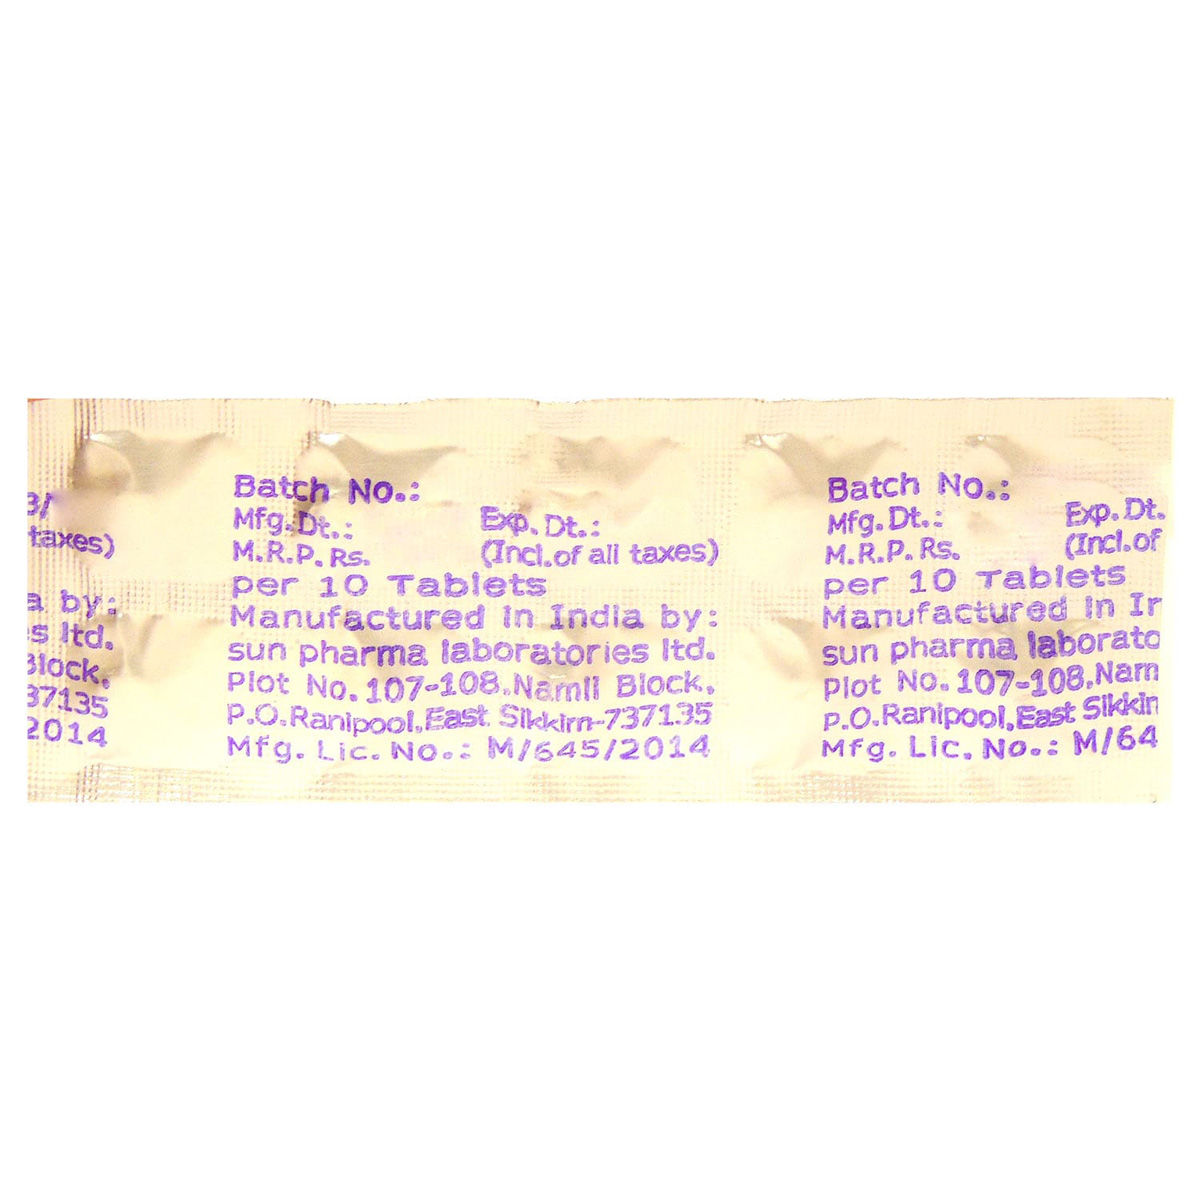 3/
taxes)
a by:
s ltd.
Block,
37135
2014
Batch No.:
Mfg.Dt.: Exp.Dt.:
M.R.P. Rs. (Incl.of all taxes)
per 10 Tablets
Manufactured in India by:
sun pharma laboratories ltd.
Plot No. 107-108, Namli Block,
P.O.Ranipool, East Sikkim-737135
Mfg. Lic. No.: M/645/2014
Batch No.:
Mfg.Dt.: Exp.Dt.
M.R.P. Rs. (Incl.of
per 10 Tablets
Manufactured in Ir
sun pharma laborato
Plot No. 107-108, Nam
P.O.Ranipool, East Sikkin
Mfg. Lic. No.: M/64